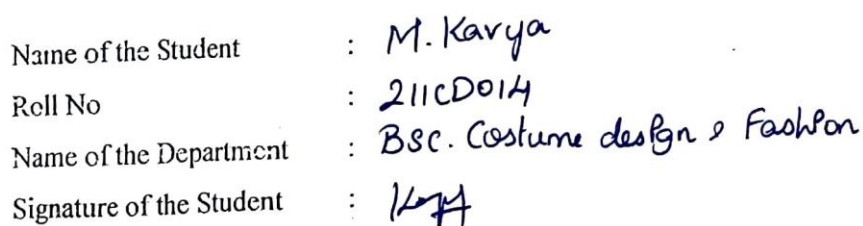 Name of the Student : M. Kavya
Roll No : 211CD014
Name of the Department : BSC. Costume design & Fashion
Signature of the Student :